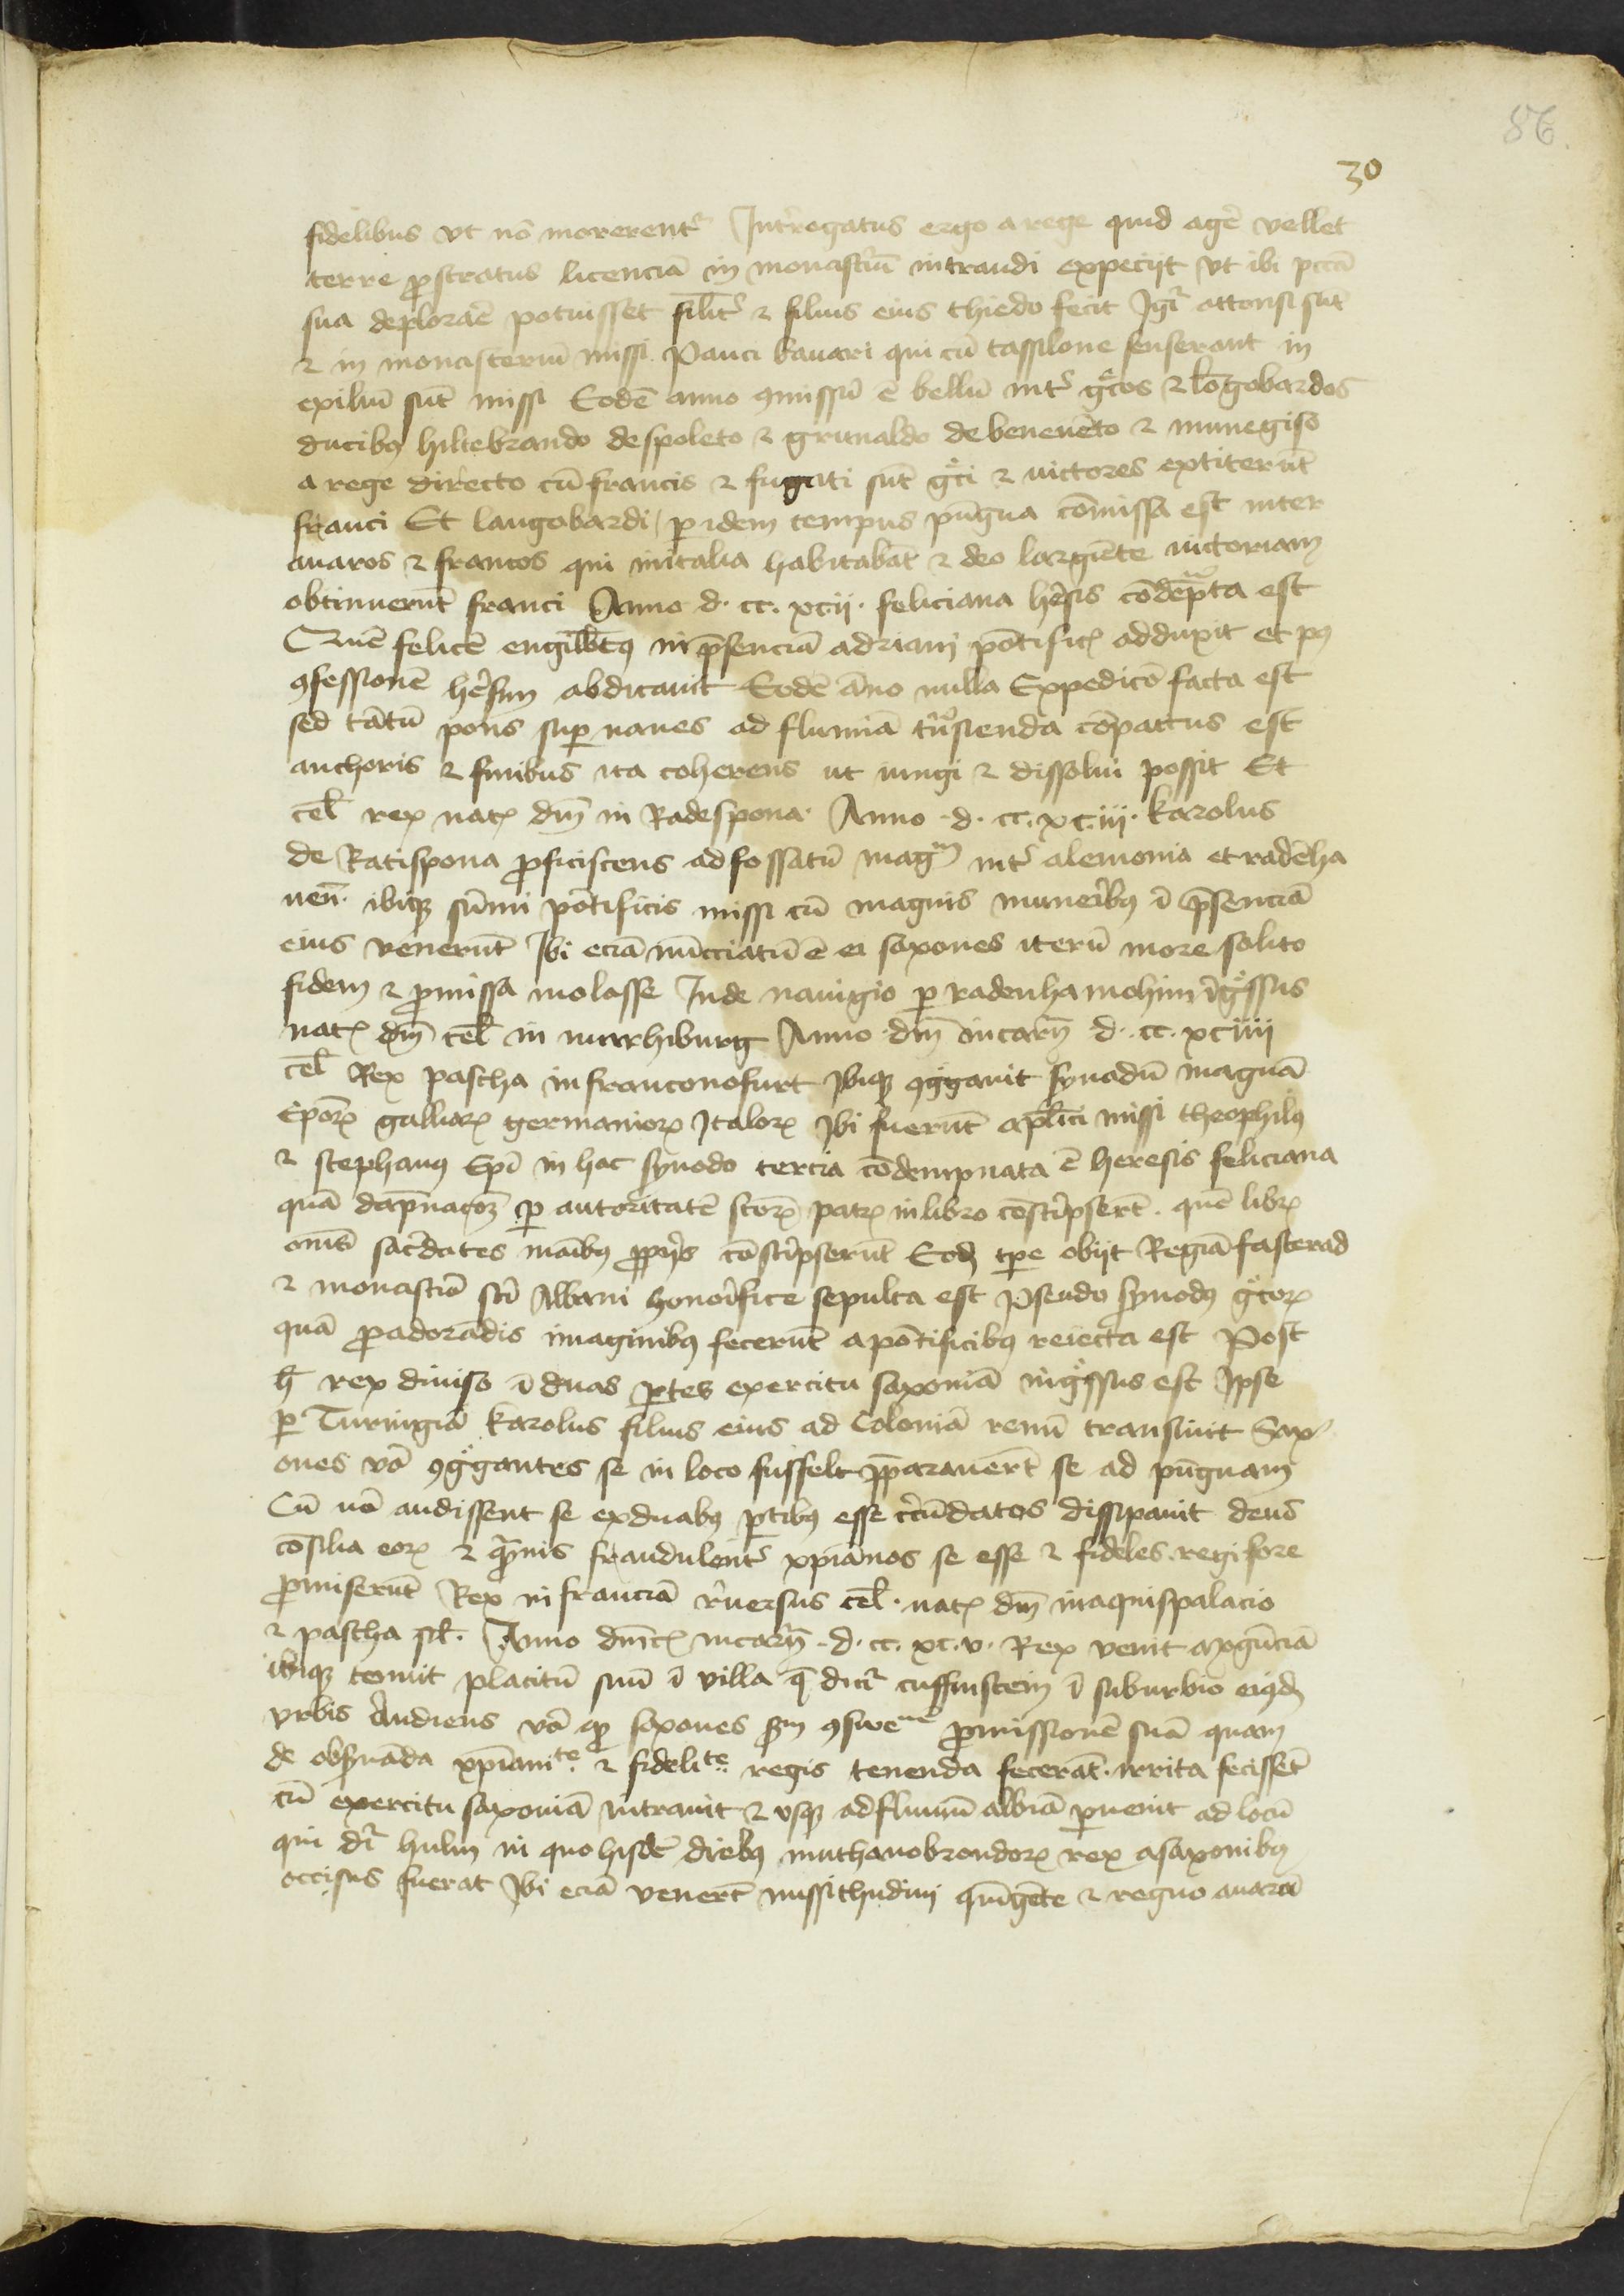 86
30
fidelibus vt nō morerentr̄ Int'rogatus ergo a rege quid ag'e vellet
terre ꝓstratus licenciā in monast'iū intrandi expeciit vt ibi pccā
sua deplorar'e potuisset silit' ⁊ filius eius thiedo fecit Igr̄ attonsi sūt
⁊ in monasteriū missi. Pauci bauari qui cū tassilone senserant in
exiliū sūt missi Eodē anno ꝯmissū ē bellū int' g'cos ⁊ lōgobardos
ducibꝰ hiltebrando de spoleto ⁊ grimaldo de beneuēto ⁊ munegiso
a rege directo cū francis ⁊ fugati sūt g'ci ⁊ uictores extiterūt
franci Et langobardi / ꝑ idem tempus pūgna cōmissa est inter
auaros ⁊ francos qui in italia habitabāt ⁊ deo largiēte uictoriam
obtinuerūt franci Anno d. cc. xcii. feliciana h'esis cōdēpᵃta est
Quē felicē engilbtꝰ in p̄senciā adriani pōtificꝭ adduxit et pꝰ
ꝯfessionē h'esim abdicauit Eodē āno nulla Expedicō facta est
sed tātū pons suꝑ naues ad flumīa t'nsienda cōpactus est
anchoris ⁊ funibus ita coherens ut iungi ⁊ dissolui possit Et
cel̄ rex natꝭ dn̄i in Radespona. Anno .d. cc. xc.iii. karolus
de Ratispona ꝓficiscens ad fossatū magᵐ int' alemoniā et radēha
uen̄. ibiqꝫ sūmi pōtificis missi cū magnis muneribꝰ ī p̄senciā
eius venerūt Ibi eciā nūcciatū ē ei saxones iterū more solito
fidem ⁊ ꝓmissa molasse Inde nauigio ꝑ radenha mohim īg'ssus
natꝭ dn̄i cel̄ in wirrhiburg Anno dn̄i incarn̄ d. cc. xciiii
cel̄ Rex pascha in franconofurt Ibiqꝫ ꝯg'gauit synodū magnā
Ep̄orꝝ galliarꝝ germaniorꝝ Italorꝝ Ibi fuerūt apl̄ici missi theophilꝰ
⁊ stephanꝰ Ep̄i in hac synodo tercia cōdempnata ē heresis feliciana
quā dāpnacōꝫ ꝑ autoritatē sc̄orꝝ patrꝝ in libro cōsc'psert̄. quē librꝝ
om̄s sac'dotes manibꝰ ꝓpriis cōsc'pserūt Eodꝫ tꝑe obiit Reginā fasterad
⁊ monast'iō sc̄i Albani honorifice sepulta est Pseudo synodꝰ g'corꝝ
quā ꝓ adorādis imaginibꝰ fecerūt a pōtificibꝰ reiecta est Post
h̄ rex diuiso ī duas ꝑtes exercitu saxoniā ing'ssus est Ipse
ꝑ Turingiā karolus filius eius ad Coloniā renū transiuit Sax
ones vo ꝯg'gantes se in loco suffelt p̄ꝑarauert̄ se ad pūgnam
Cū vo audissent se ex duabꝰ ꝑtibꝰ esse c'cūdatos dissipauit deus
cōsilia eorꝝ ⁊ q̄muis fraudulent' xpianos se esse ⁊ fideles regi fore
ꝓmiserūt Rex in franciā r'uersus cel̄. natꝭ dn̄i in aquispalacio
⁊ pascha sil̄. Anno dn̄icꝭ incarn̄ .d. cc. xc.v. Rex venit mogūciā
ibiqꝫ tenuit placitū suū ī villa q̄ dicit' cuffinstein ī suburbio eiꝰdꝫ
vrbis Audiens vo ꝙ saxones sm̄ ꝯsweᵗᵉ ꝓmissionē suā quam
de obs'uāda xp̄ianitᵉ ⁊ fidelitᵉ regis tenenda fecerāt. irrita fecisset̄
cū exercitu saxoniā intrauit ⁊ vsqꝫ ad fluuiū albiā ꝑuenit ad locū
qui dr̄ hulin in quo hisdē diebꝰ muthanobrondorꝝ rex a saxonibꝰ
occisus fuerat Ibi eciā venert̄ missi thudini qui ī gēte ⁊ regno auarā